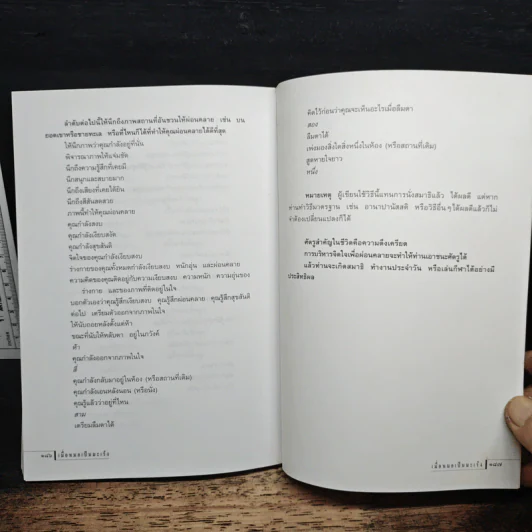 ลำดับต่อไปนี้ให้นึกถึงภาพสถานที่อันชวนให้ผ่อนคลาย เช่น บน
ยอดเขาหรือชายทะเล หรือที่ไหนก็ได้ที่ทำให้คุณผ่อนคลายได้ดีที่สุด
ให้นึกภาพว่าคุณกำลังอยู่ที่นั่น
พิจารณาภาพให้แจ่มชัด
นึกถึงความรู้สึกที่เคยมี
นึกสนุกและสบายมาก
นึกถึงเสียงที่เคยได้ยิน
นึกถึงสีสันแสดสวย
ภาพนี้ทำให้คุณผ่อนคลาย
คุณกำลังสงบ
คุณกำลังเงียบสงัด
คุณกำลังสุขสันติ
จิตใจของคุณกำลังเงียบสงบ
ร่างกายของคุณทั้งหมดกำลังเงียบสงบ หนักอุ่น และผ่อนคลาย
ความคิดของคุณคิดอยู่กับความเงียบสงบ ความหนัก ความอุ่นของ
ร่างกาย และของภาพที่คิดอยู่ในใจ
บอกตัวเองว่าคุณรู้สึกเงียบสงบ คุณรู้สึกผ่อนคลาย คุณรู้สึกสุขสันติ
ต่อไป เตรียมตัวออกจากภาพในใจ
ให้นับถอยหลังตั้งแต่ห้า
ขณะที่นับให้หลับตา อยู่ในภวังค์
ห้า
คุณกำลังออกจากภาพในใจ
สี่
คุณกำลังกลับมาอยู่ในห้อง (หรือสถานที่เดิม)
คุณกำลังเอนหลังนอน (หรือนั่ง)
คุณรู้แล้วว่าอยู่ที่ไหน
สาม
เตรียมลืมตาได้
๑๘๖ เมื่อหมอเป็นมะเร็ง
คิดไว้ก่อนว่าคุณจะเห็นอะไรเมื่อลืมตา
สอง
ลืมตาได้
เพ่งมองสิ่งใดสิ่งหนึ่งในห้อง (หรือสถานที่เดิม)
สูดหายใจยาว
หนึ่ง
หมายเหตุ ผู้เขียนใช้วิธีนี้แทนการนั่งสมาธิแล้ว ได้ผลดี แต่หาก
ท่านทำวิธีมาตรฐาน เช่น อานาปานัสสติ หรือวิธีอื่นๆ ได้ผลดีแล้วก็ไม่
จำต้องเปลี่ยนแปลงก็ได้
ศัตรูสำคัญในชีวิตคือความตึงเครียด
การบริหารจิตใจเพื่อผ่อนคลายจะทำให้ท่านเอาชนะศัตรูได้
แล้วท่านจะเกิดสมาธิ ทำงานประจำวัน หรือเล่นกีฬาได้อย่างมี
ประสิทธิผล
เมื่อหมอเป็นมะเร็ง ๑๘๗